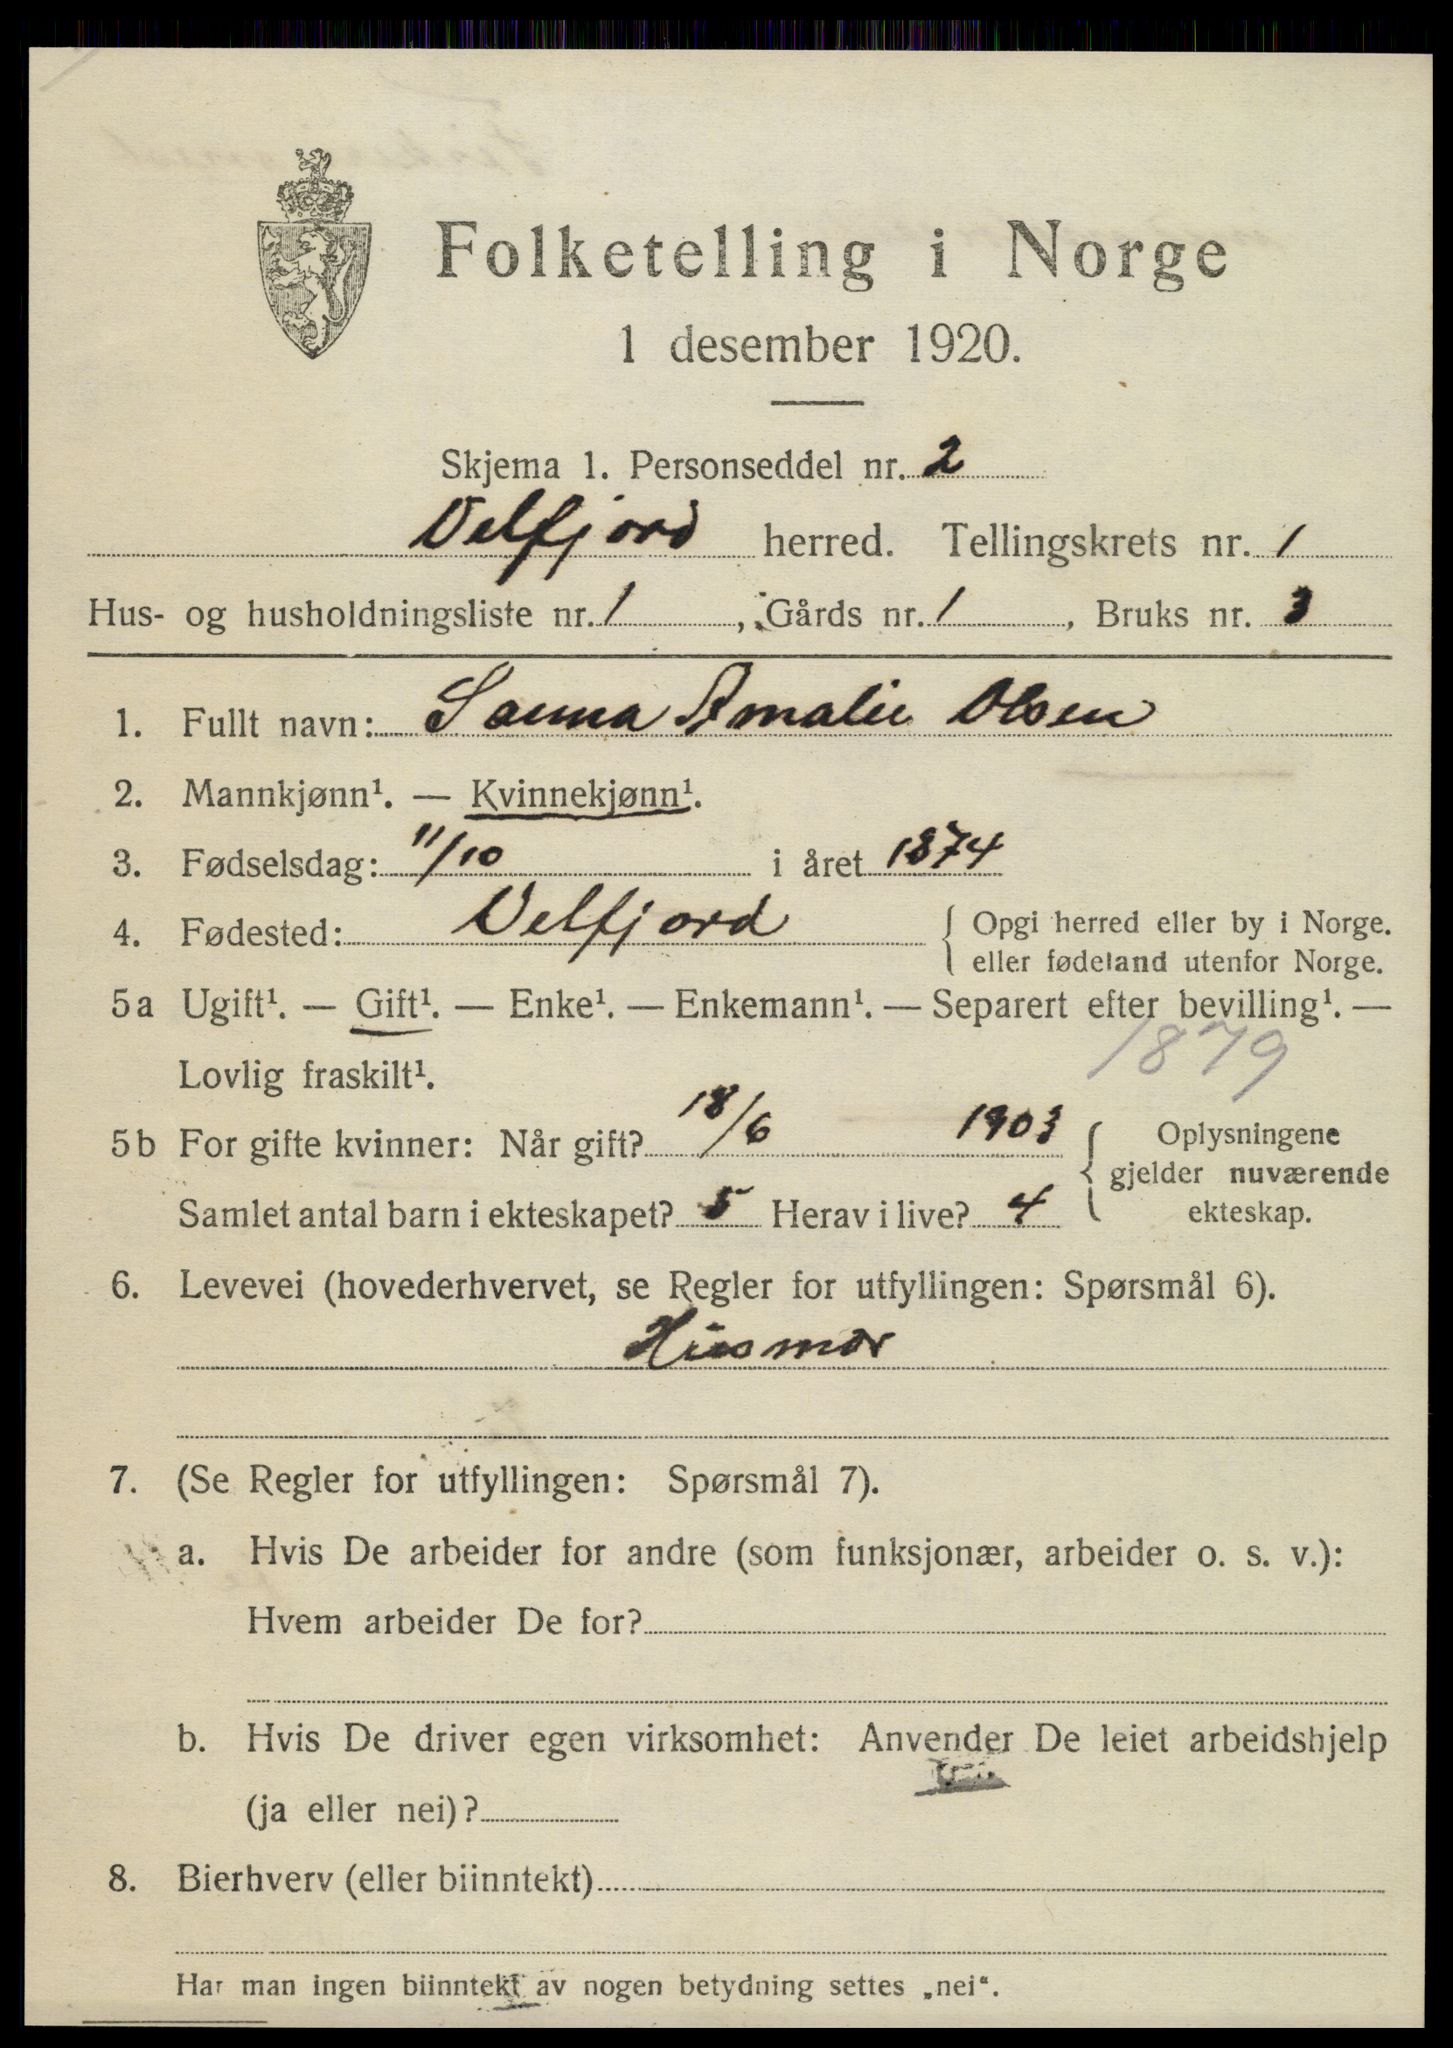 Folketelling i Norge
1 desember 1920.
Skjema 1. Personseddel nr. 2
Velfjord herred. Tellingskrets nr. 1
Hus- og husholdningsliste nr. 1, Gårds nr. 1, Bruks nr. 3
1. Fullt navn: Sanna Amalie Olsen
2. Mannkjønn¹. — Kvinnekjønn¹.
3. Fødselsdag: 11/10 i året 1874
4. Fødested: Velfjord { Opgi herred eller by i Norge.
eller fødeland utenfor Norge.
5a Ugift¹. — Gift¹. — Enke¹. — Enkemann¹. — Separert efter bevilling¹. —
Lovlig fraskilt¹. 1879
5b For gifte kvinner: Når gift? 18/6 1903 { Oplysningene
gjelder nuværende
Samlet antal barn i ekteskapet? 5 Herav i live? 4 ekteskap.
6. Levevei (hovederhvervet, se Regler for utfyllingen: Spørsmål 6).
Husmor
7. (Se Regler for utfyllingen: Spørsmål 7).
a. Hvis De arbeider for andre (som funksjonær, arbeider o. s. v.):
Hvem arbeider De for?
b. Hvis De driver egen virksomhet: Anvender De leiet arbeidshjelp
(ja eller nei)?
8. Bierhverv (eller biinntekt)
Har man ingen biinntekt av nogen betydning settes „nei“.